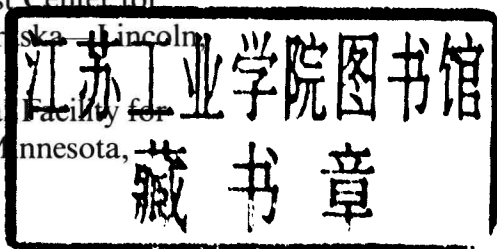 st Center for
ska—Lincoln,
江苏工业学院图书馆
Facility for
innesota,
藏书章